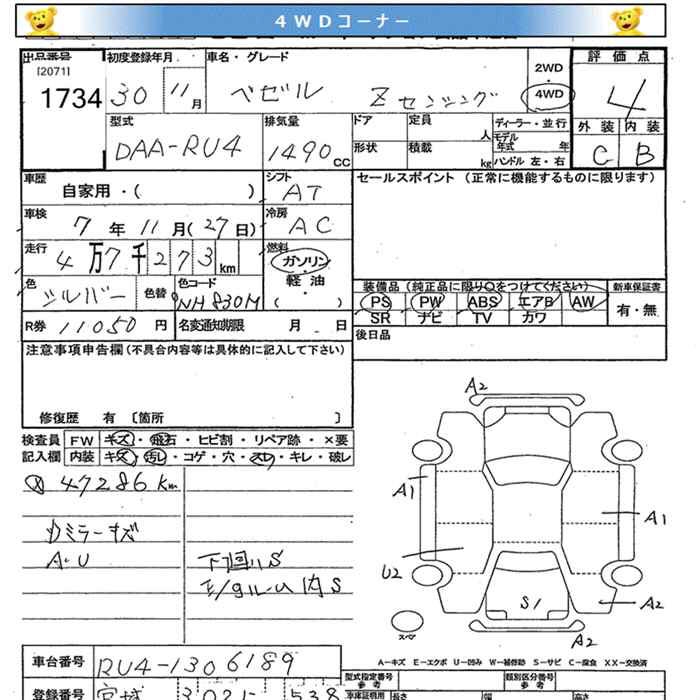 4WDコーナー
出品番号 初度登録年月 車名・グレード
[2071]
1734 30 11月 ベゼル Zセンシング 2WD 4WD 評価点 4
型式 DAA-RU4 排気量 1490cc ドア 定員 人 ディーラー・並行 外装 内装
形状 積載 kg モデル年式 年 ハンドル 左・右 C B
車歴 自家用・( ) シフト AT セールスポイント (正常に機能するものに限ります)
車検 7年11月(27日) 冷房 AC
走行 4万7千273km 燃料 ガソリン・軽油・( )
色 シルバー 色替 色コード NH830M 装備品(純正品に限り○をつけてください) 新車保証書
PS PW ABS エアB AW 有・無
SR ナビ TV カワ
R券 11050円 名変通知期限 月 日 後日品
注意事項申告欄(不具合内容等は具体的に記入して下さい)
修復歴 有 〔箇所 〕
検査員 FW キズ・飛石・ヒビ割・リペア跡・×要
記入欄 内装 キズ・汚レ・コゲ・穴・スレ・キレ・破レ
47286Km
ミラーキズ
A・U 下回りS
内S
A2
A1
A1
U2
S1
A2
スペア
A2
A－キズ E－エクボ U－凹み W－補修跡 S－サビ C－腐食 XX－交換済
車台番号 RU4-1306189 型式指定番号 類別区分番号
参考 参考
登録番号 宮城 302 538 車庫証明用 長さ 幅 高さ